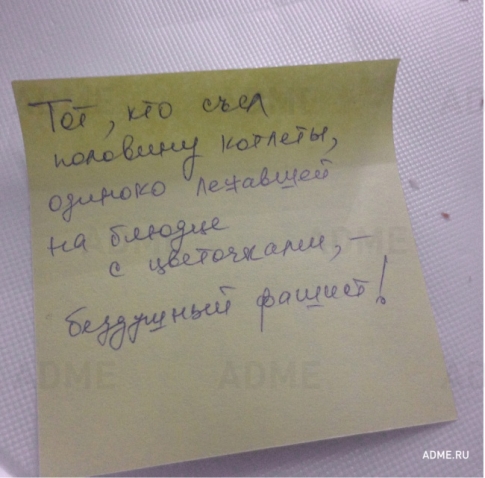 Тот, кто съел
половину котлеты,
одиноко лежавшей
на блюдце
с цветочками, —
бездушный фашист!
ADME
ADME
ADME
ADME
ADME
ADME
ADME.RU